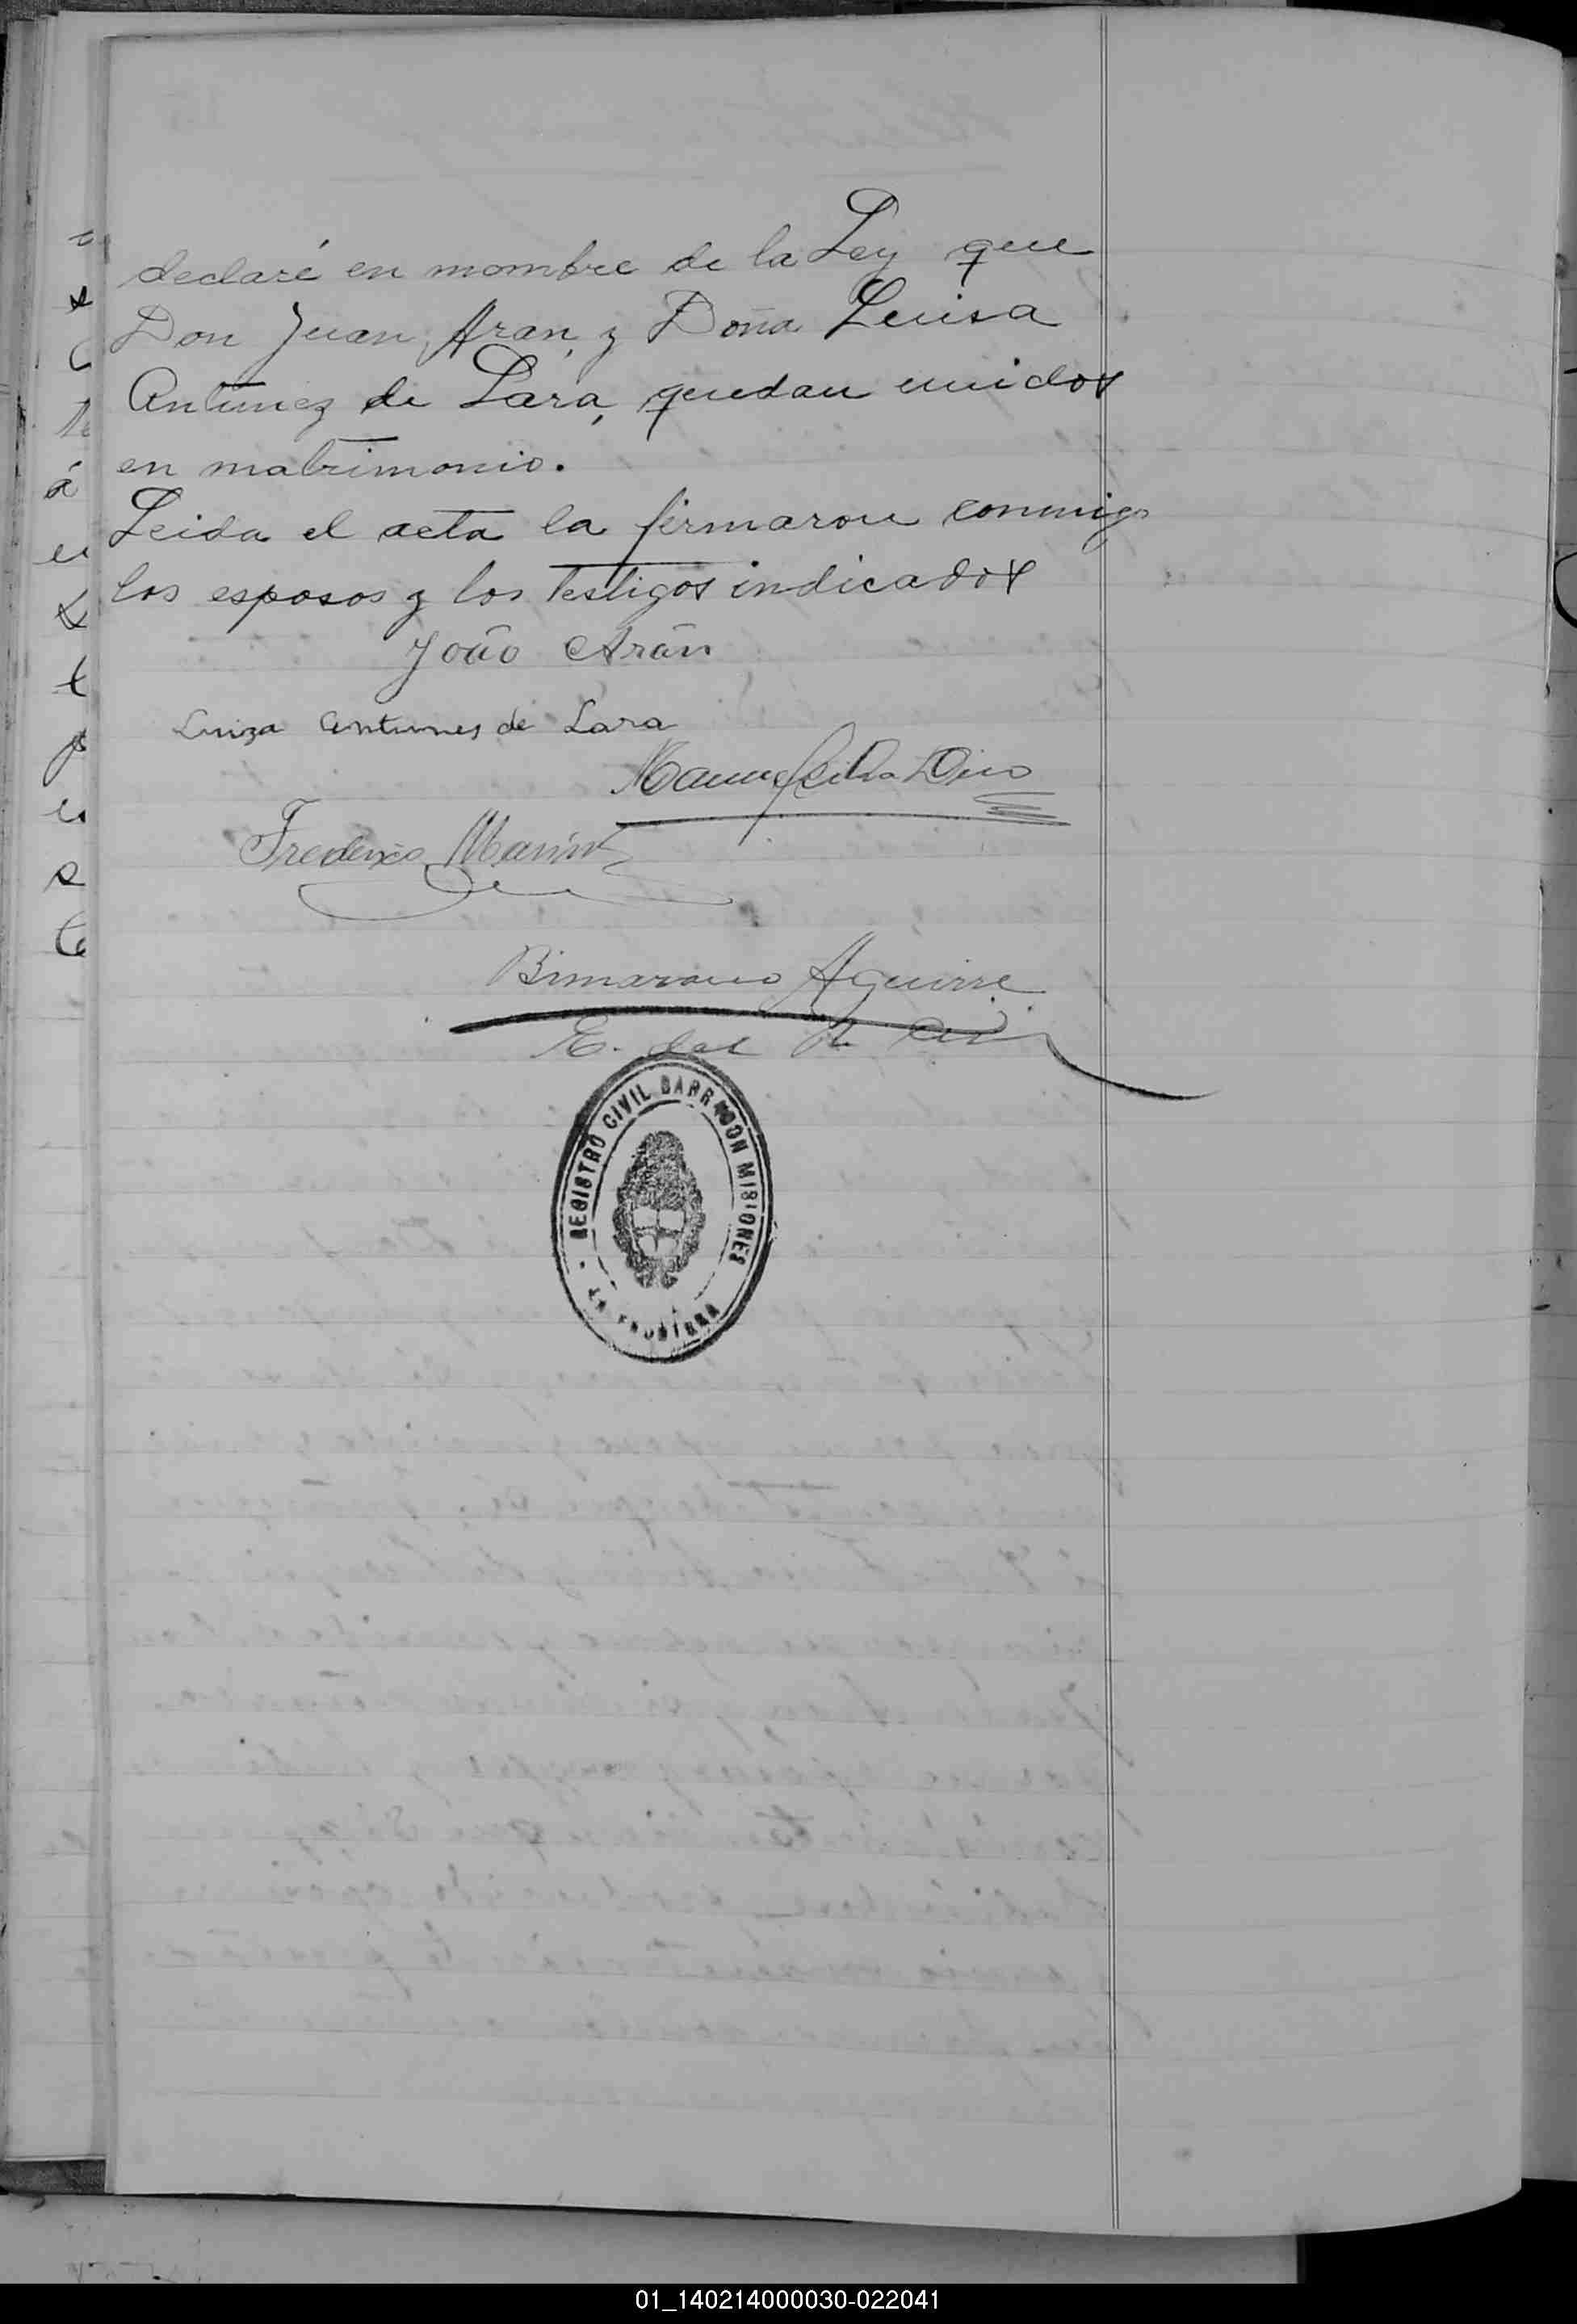 declaré en nombre de la Ley que
Don Juan Aran, y Doña Luisa
Antunez de Lara, quedan unidos
en matrimonio.
Leida el acta la firmaron conmigo
los esposos y los testigos indicados
João Arán
Luiza Antunes de Lara
Manuel Silva Dico
Frederico Marin
Bimarano Aguirre
E. del R. Civil
REGISTRO CIVIL BARRACON MISIONES
LA FRONTERA
01_140214000030-022041